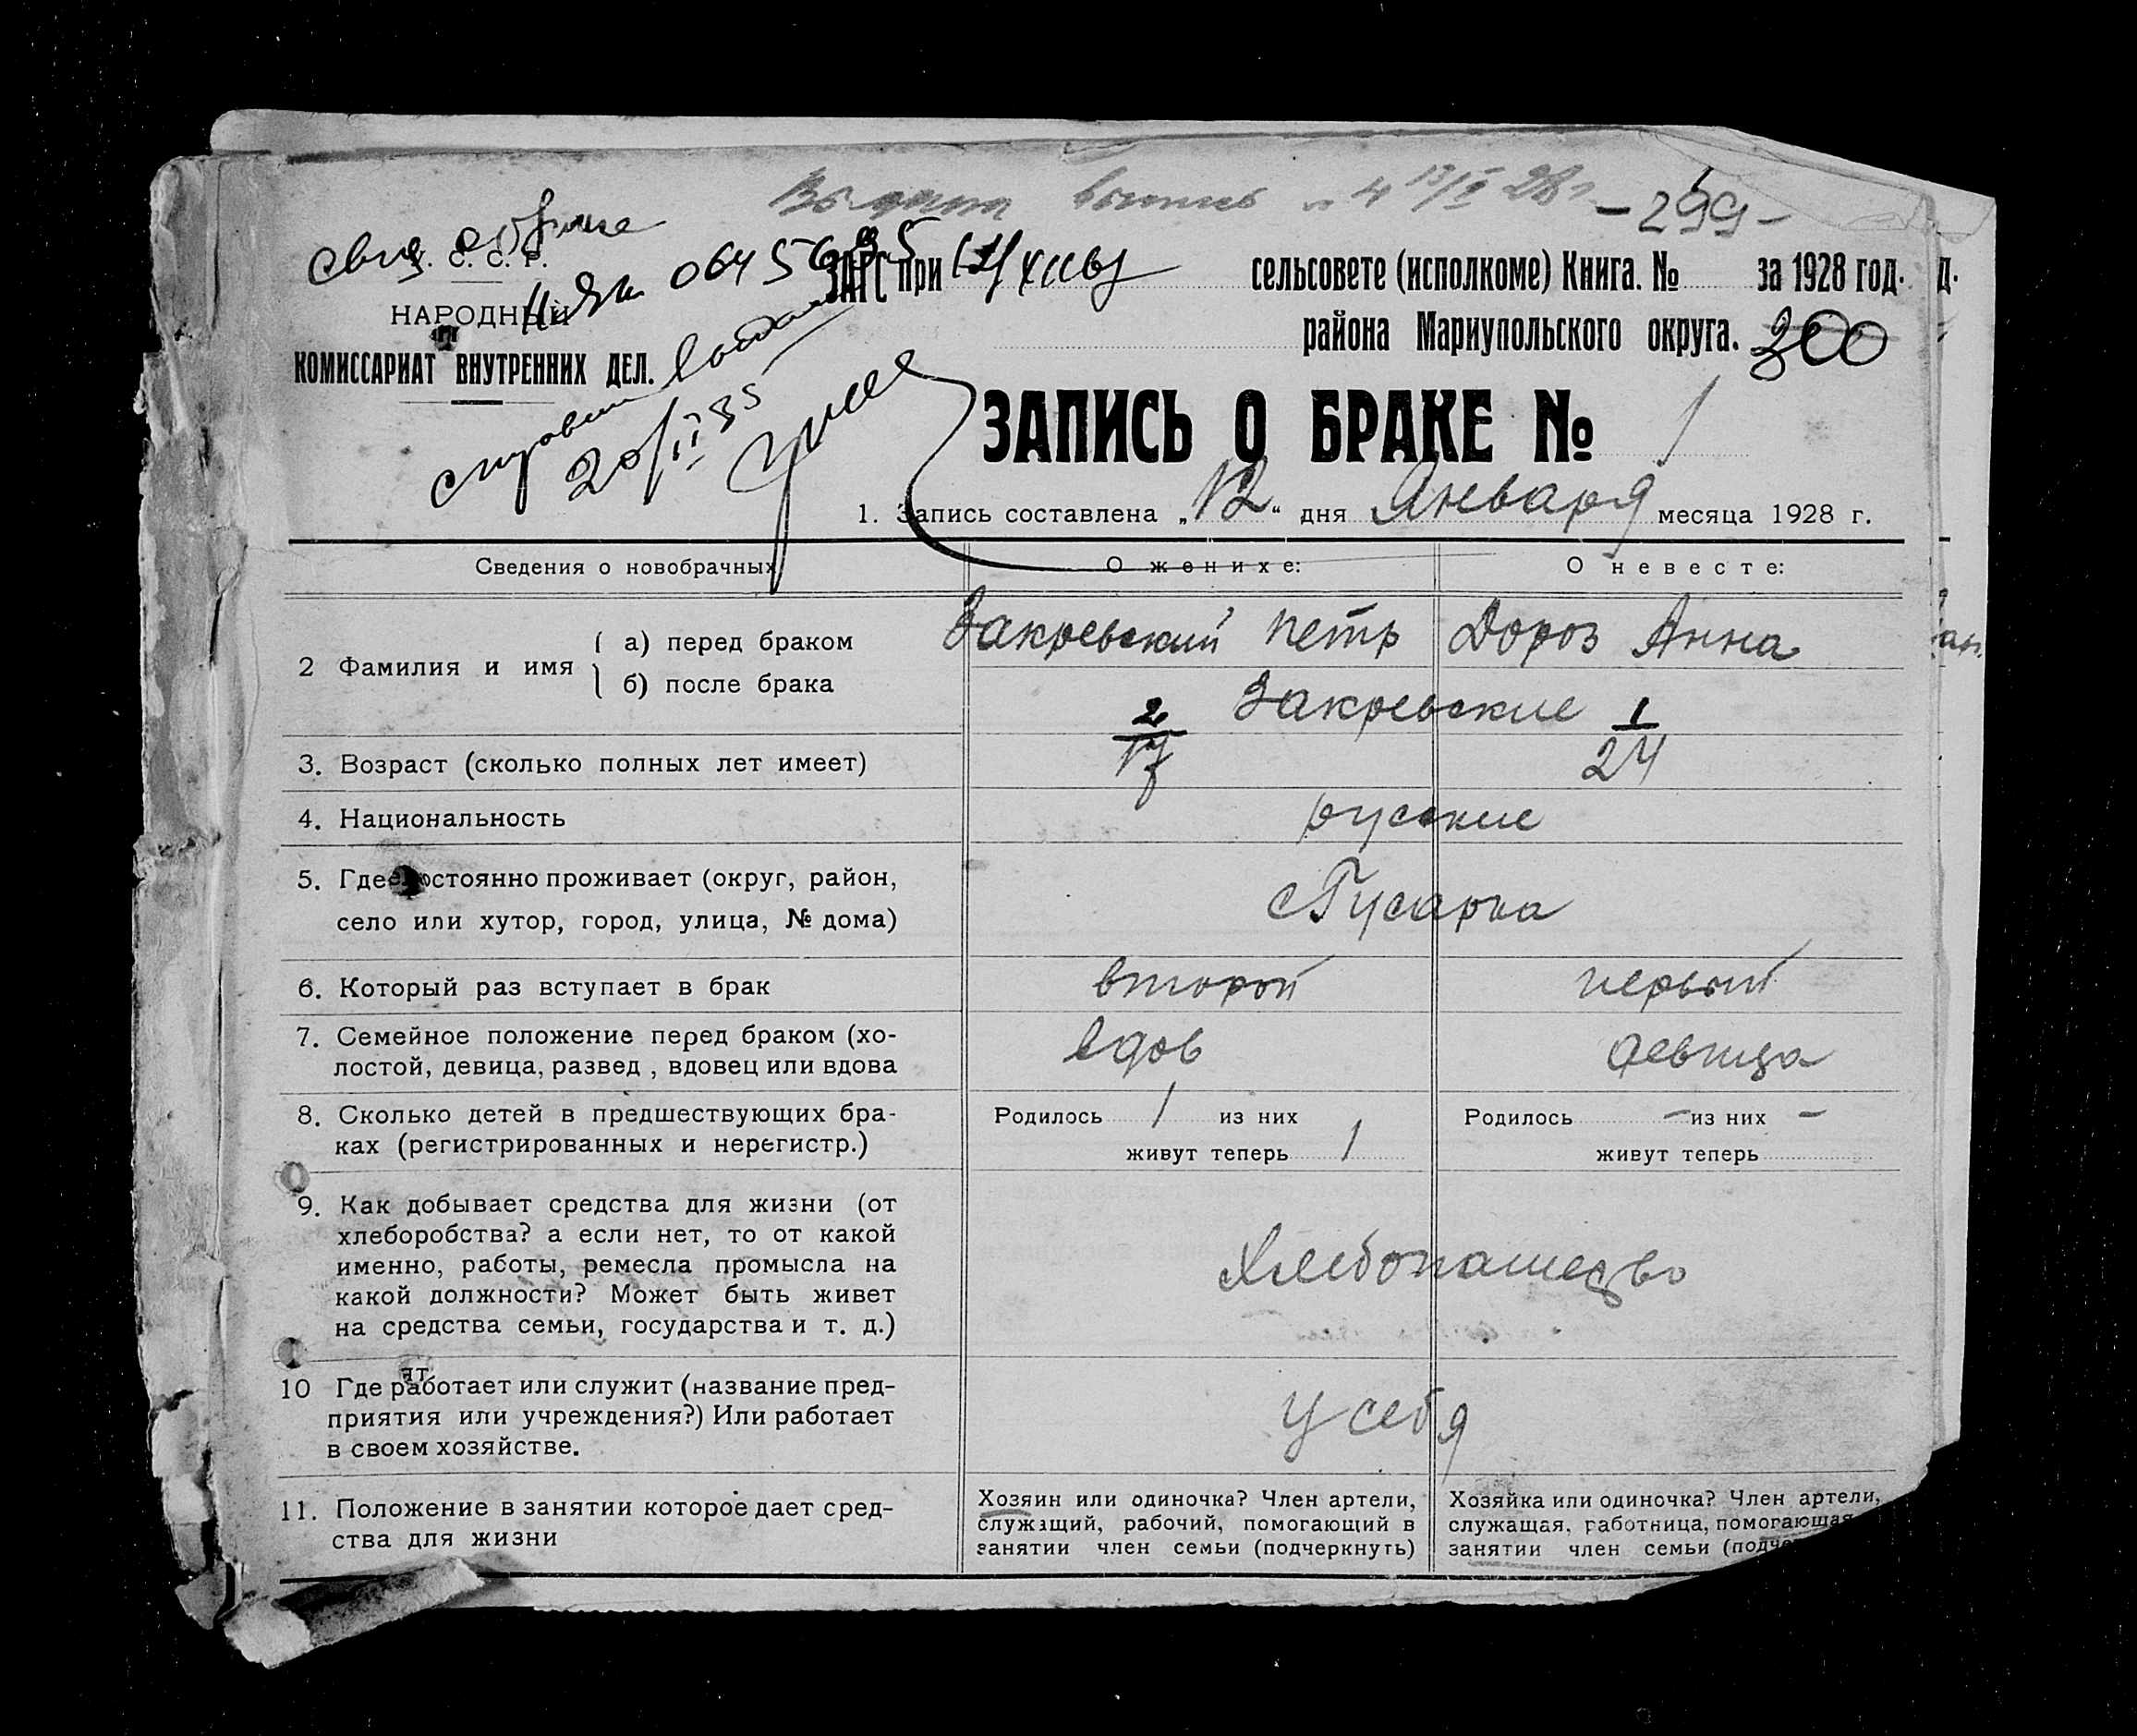 -299-
У. С. С. Р.
НАРОДНЫЙ
КОМИССАРИАТ ВНУТРЕННИХ ДЕЛ.
ЗАГС при сельсовете (исполкоме) Книга. № за 1928 год.
района Мариупольского округа. 300
20/II 35
ЗАПИСЬ О БРАКЕ № 1
1. Запись составлена „12" дня Января месяца 1928 г.
Сведения о новобрачных О женихе: О невесте:
2 Фамилия и имя а) перед браком Закревский Петр Дороз Анна
б) после брака Закревские
2 1
3. Возраст (сколько полных лет имеет) 17 24
4. Национальность русские
5. Где постоянно проживает (округ, район,
село или хутор, город, улица, № дома) с Гусарка
6. Который раз вступает в брак второй первый
7. Семейное положение перед браком (хо-
лостой, девица, развед , вдовец или вдова вдов девица
8. Сколько детей в предшествующих бра-
ках (регистрированных и нерегистр.)
Родилось 1 из них
живут теперь 1
Родилось – из них –
живут теперь
9. Как добывает средства для жизни (от
хлеборобства? а если нет, то от какой
именно, работы, ремесла промысла на
какой должности? Может быть живет
на средства семьи, государства и т. д.)
Хлебопашество
10 Где работает или служит (название пред-
приятия или учреждения?) Или работает
в своем хозяйстве.
у себя
11. Положение в занятии которое дает сред-
ства для жизни
Хозяин или одиночка? Член артели,
служащий, рабочий, помогающий в
занятии член семьи (подчеркнуть)
Хозяйка или одиночка? Член артели,
служащая, работница, помогающая
занятии член семьи